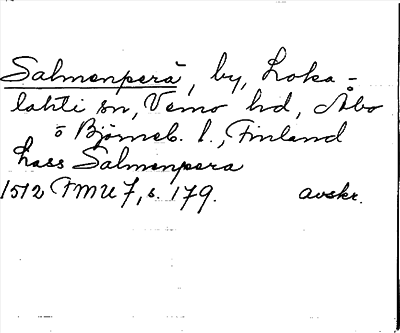 Salmenperä, by, Loka-
lahti sn, Vemo hd, Åbo
o Björneb. l., Finland
Lass Salmenpera
1512 FMU 7, s. 179. avskr.